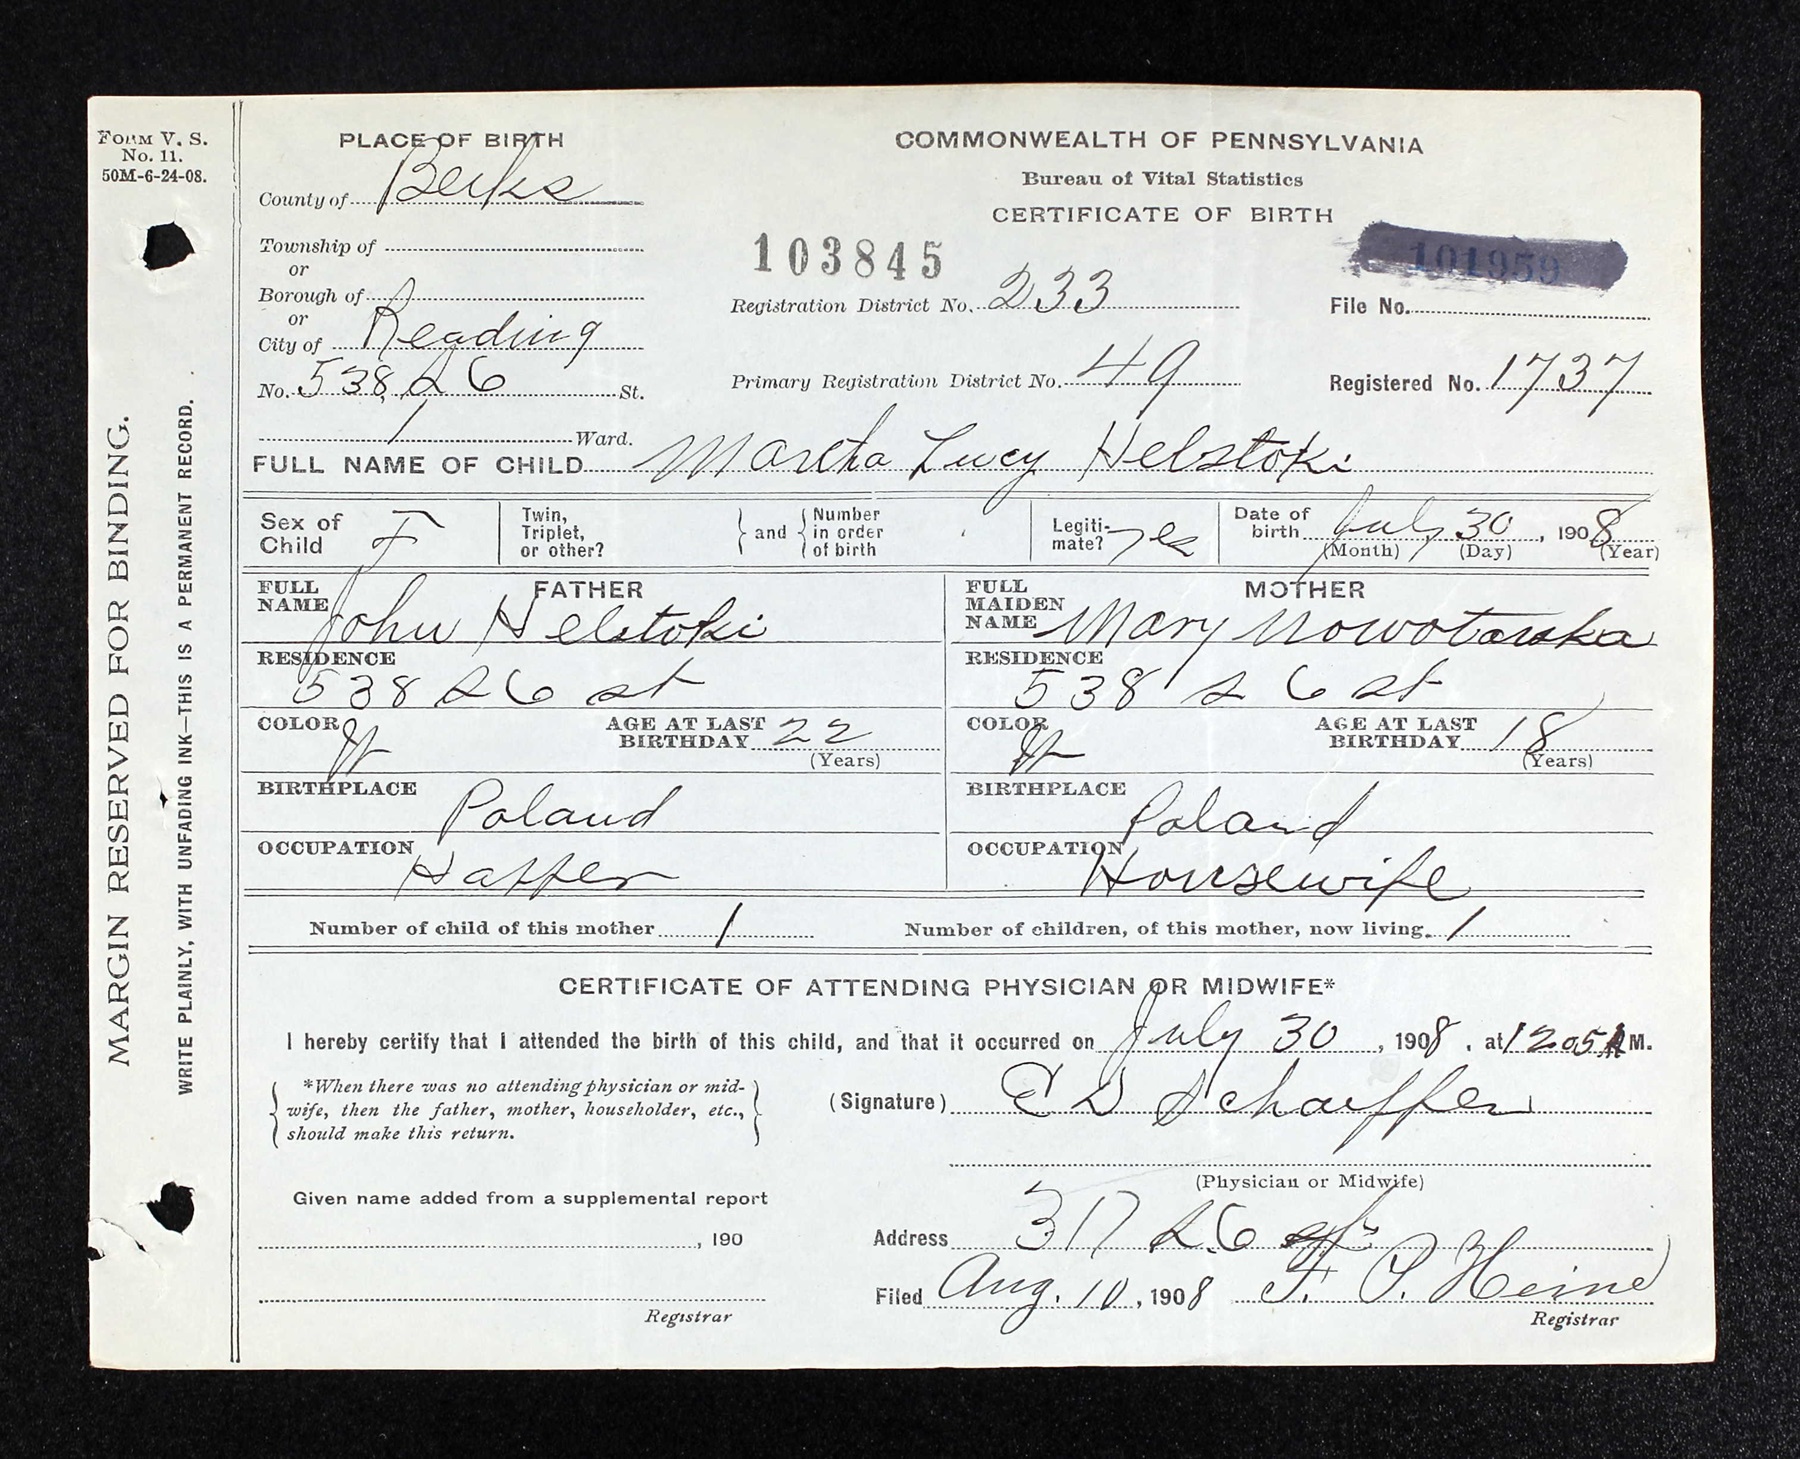 FORM V. S.
No. 11.
50M-6-24-08.
MARGIN RESERVED FOR BINDING.
WRITE PLAINLY, WITH UNFADING INK—THIS IS A PERMANENT RECORD.
PLACE OF BIRTH
County of Berks
Township of
or
Borough of
or
City of Reading
No. 538 S 6 St.
1 Ward.
COMMONWEALTH OF PENNSYLVANIA
Bureau of Vital Statistics
CERTIFICATE OF BIRTH
103845
101959
Registration District No. 233
File No.
Primary Registration District No. 49
Registered No. 1737
FULL NAME OF CHILD Martha Lucy Helstoki
Sex of Child F
Twin, Triplet, or other?
and
Number in order of birth
Legiti-mate? yes
Date of birth July 30, 1908
(Month) (Day) (Year)
FATHER
FULL NAME John Helstoki
RESIDENCE
538 S 6 st
COLOR W
AGE AT LAST BIRTHDAY 22
(Years)
BIRTHPLACE
Poland
OCCUPATION
Hatter
MOTHER
FULL MAIDEN NAME Mary Nowotarska
RESIDENCE
538 S 6 st
COLOR W
AGE AT LAST BIRTHDAY 18
(Years)
BIRTHPLACE
Poland
OCCUPATION
Housewife
Number of child of this mother 1
Number of children, of this mother, now living. 1
CERTIFICATE OF ATTENDING PHYSICIAN OR MIDWIFE*
I hereby certify that I attended the birth of this child, and that it occurred on July 30, 1908, at 12 05 A M.
*When there was no attending physician or mid-
wife, then the father, mother, householder, etc.,
should make this return.
(Signature) C D Schaeffer
(Physician or Midwife)
Given name added from a supplemental report
, 190
Registrar
Address 317 S. 6 st
Filed Aug. 10, 1908 F. P. Heine
Registrar